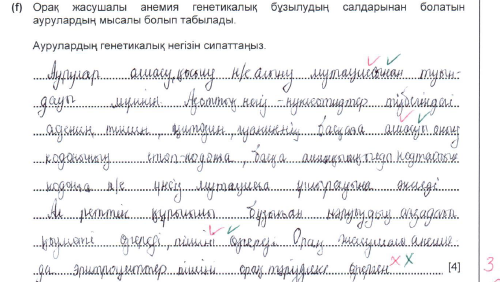 (f) Орақ жасушалы анемия генетикалық бұзылудың салдарынан болатын
аурулардың мысалы болып табылады.
Аурулардың генетикалық негізін сипаттаңыз.
Аурулар алмасу, қосылу н/е алыну мутациясынан туын-
дауы мүмкін. Азоттық негіз - нуклеотидтер тізбегіндегі
аденин, тимин, цитозин, гуаниннің басқаға ауысуы
кодонның стоп-кодонға, басқа амин
кодонға н/е үнсіз мутацияға ұшырауына әкеледі
Ақ реттік құрылымы бұзылған нәруыздың ағзадағы
қызметі өзгереді, пішіні өзгереді. Орақ жасушалы анемия-
да эритроциттер пішіні орақ тәрізді өзгерген
[4]
3